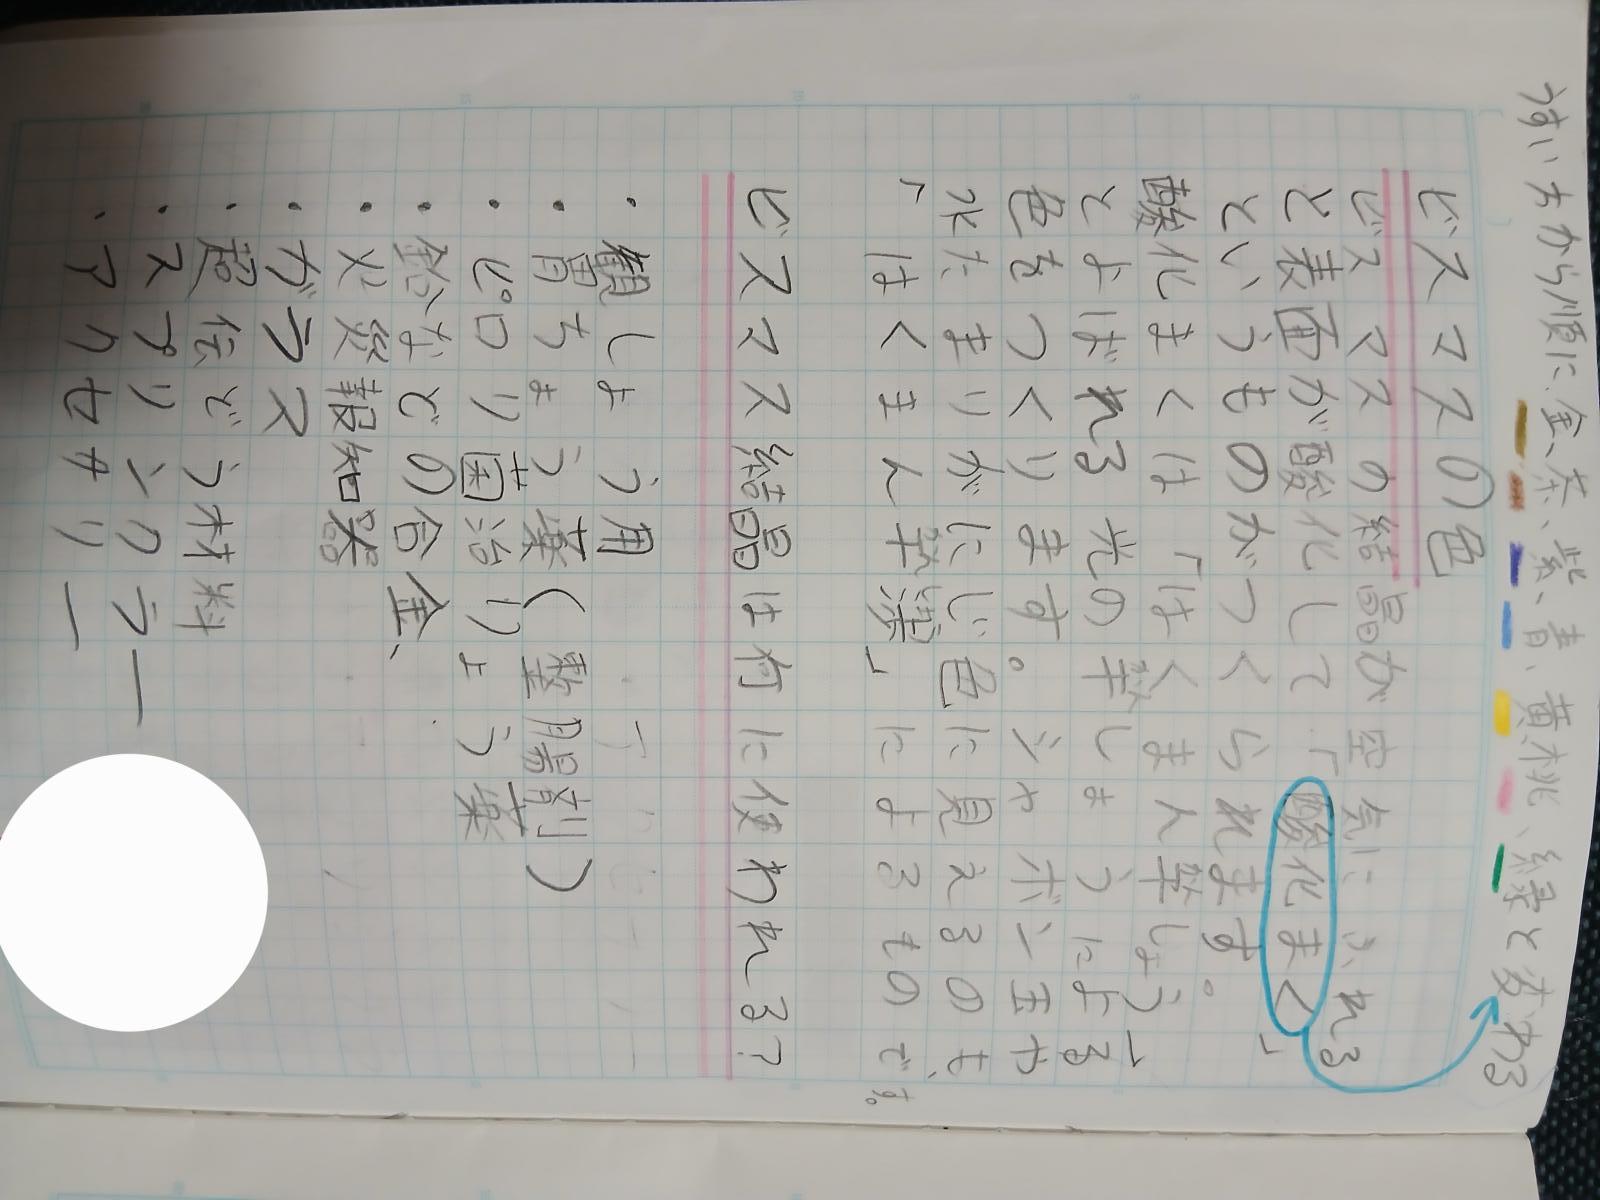 うすい方から順に、金、茶、紫、青、黄、桃、緑と変わる
ビスマスの色
ビスマスの結晶が空気にふれる
と表面が酸化して、「酸化まく」
というものがつくられます。
酸化まくは「はくまく干しょう」
とよばれる光の干しょうによる
色をつくります。シャボン玉や
水たまりがにじ色に見えるのも、
「はくまく干渉」によるものです。
ビスマス結晶は何に使われる?
・観しょう用
・胃ちょう薬(整腸剤)
・ピロリ菌治りょう薬
・鉛などの合金、
・火災報知器
・ガラス
・超伝どう材料
・スプリンクラー
・アクセサリー